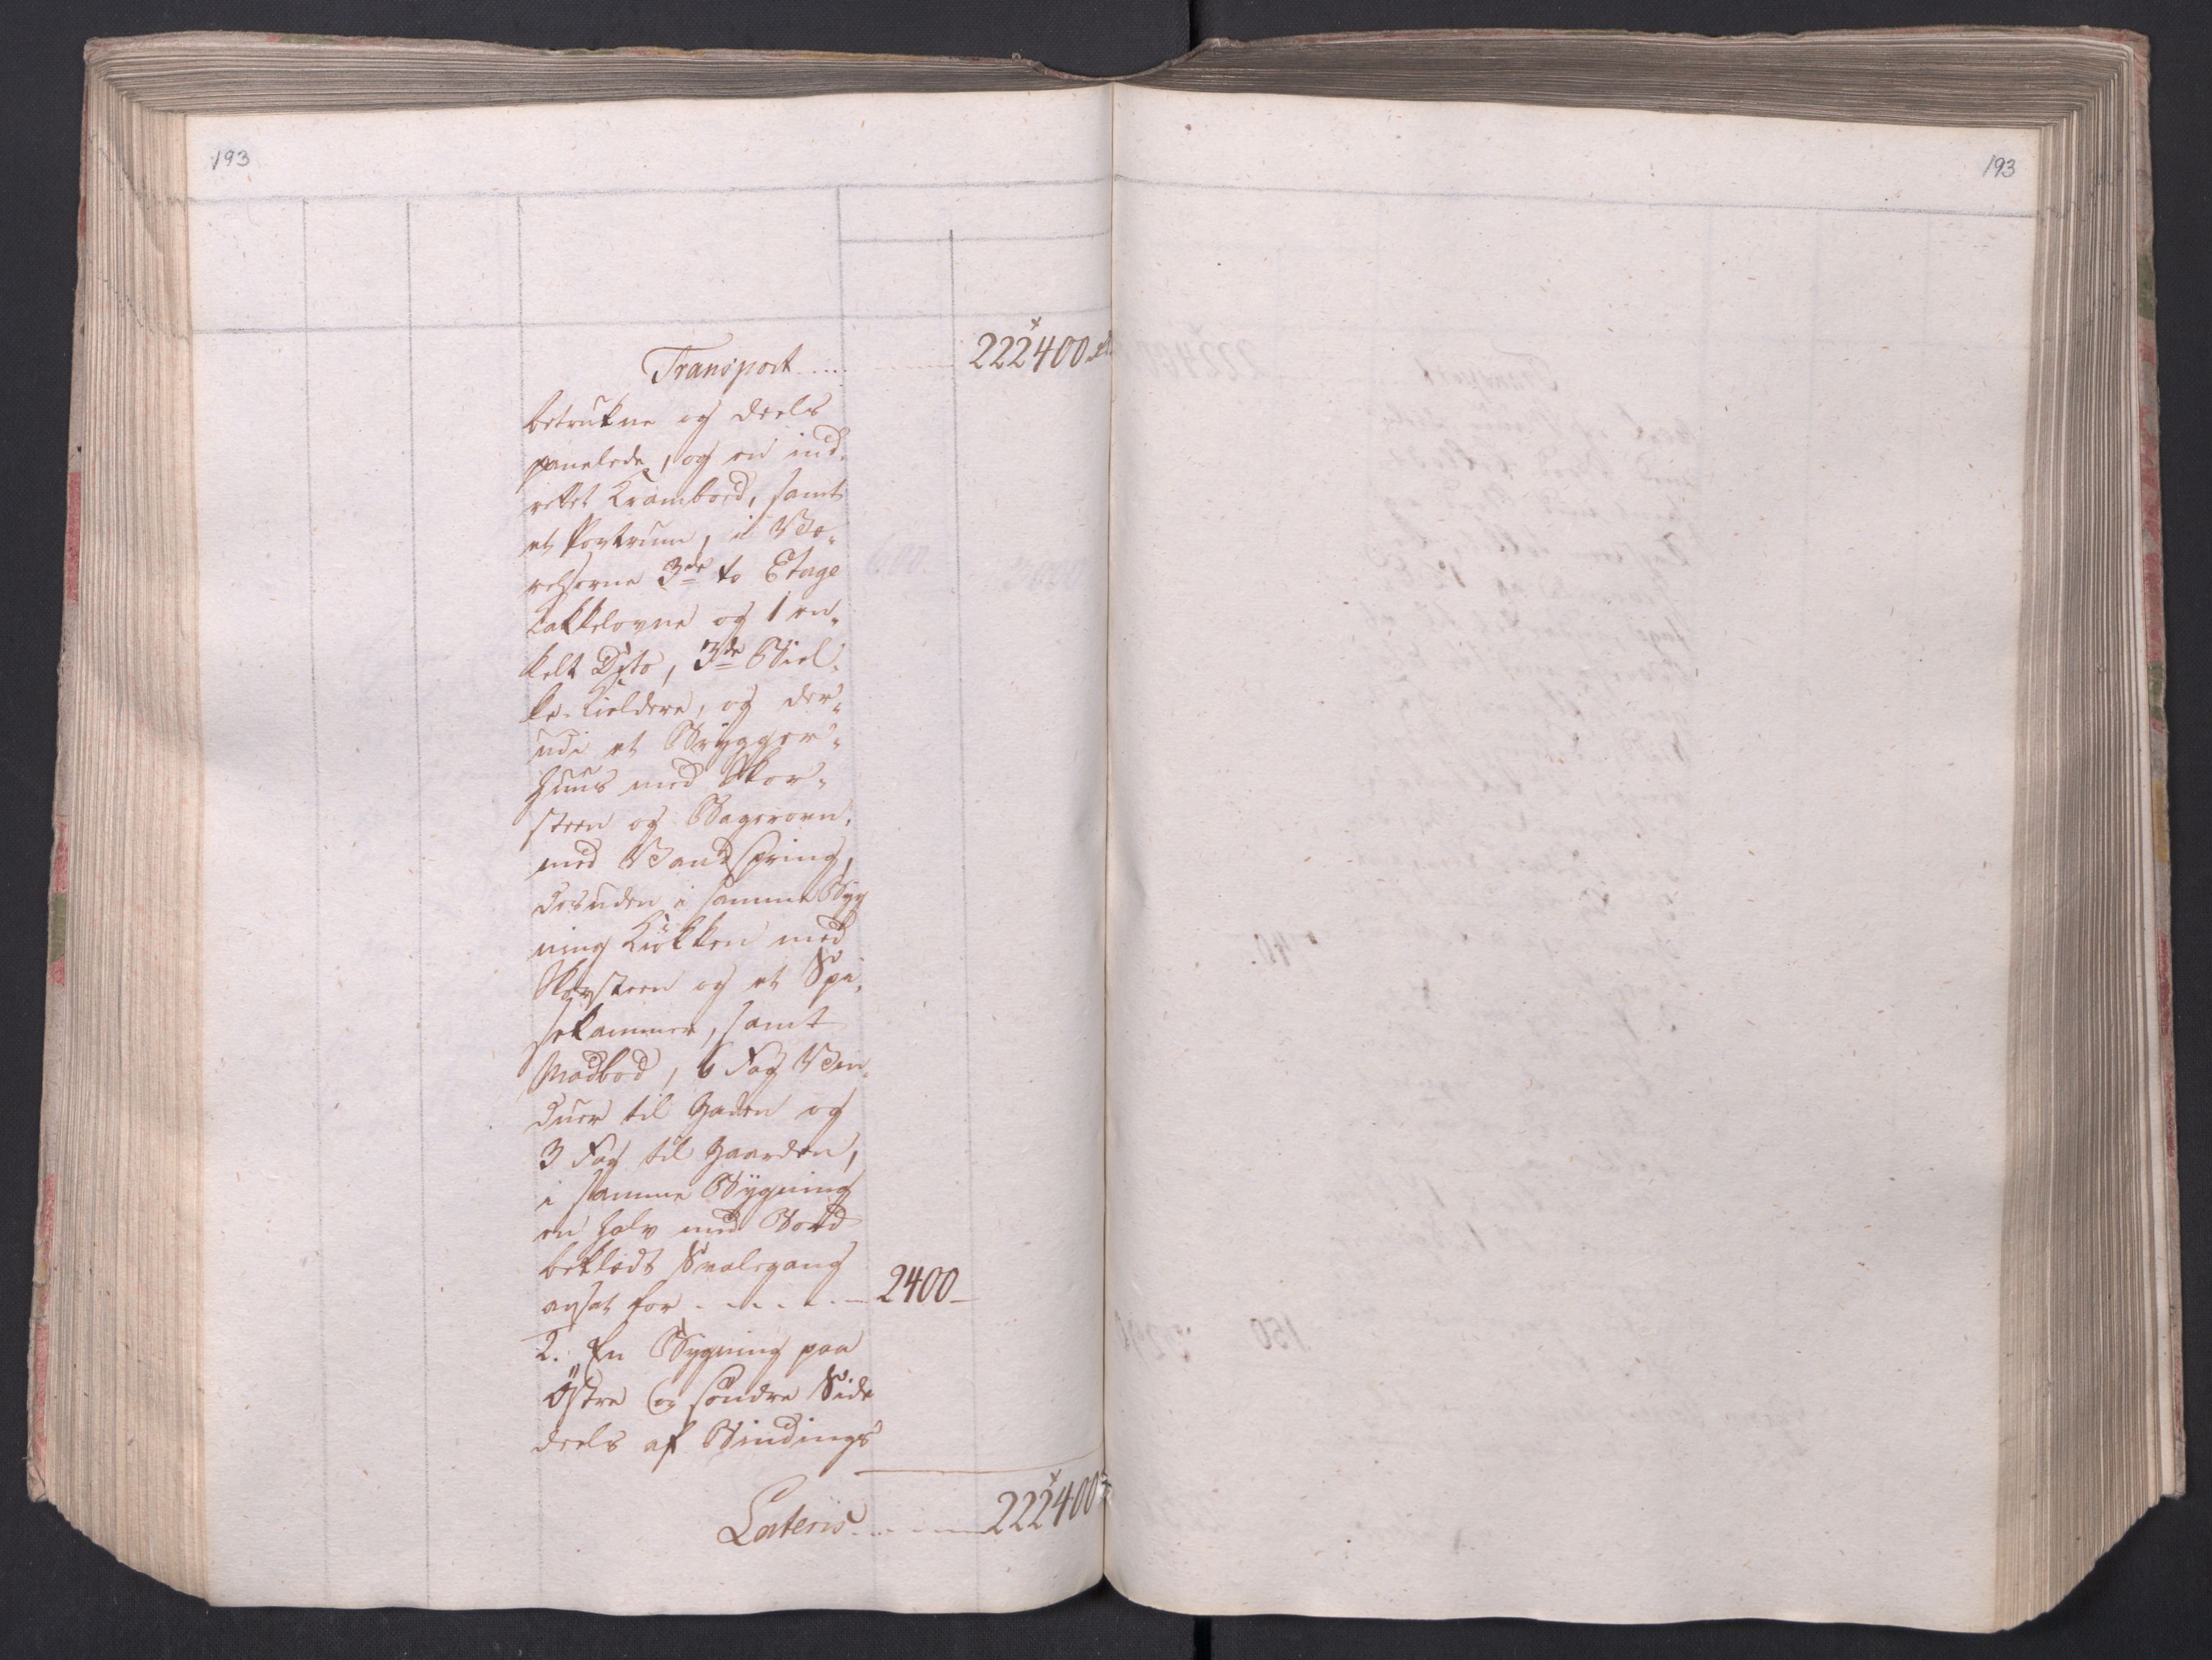 193
193
Transport..... 222400 rd
betrukne og deels
panelede, og en ind,
rettet Krambod, samt
et Portrum, i Væ,
relserne 3de to Etage
Kakkelovne og 1 en,
kelt Dito, 3de Biel,
ke-Kieldere, og der,
udi et Brygger,
huus med Skor,
steen og Bagerovn,
med Vandspring,
desuden i samme Byg
ning Kiökken med
Skorsteen og et Spi,
sekammer, samt
Madbod, 6 Fag Vin,
duer til Gaden og
3 Fag til Gaarden,
i samme Bygning
en halv med Bord
beklædt Svalegang
ansat for - - - - - 2400-
2. En Bygning paa
Östre og söndre Side
deels af Bindings
Lateris..... 222400